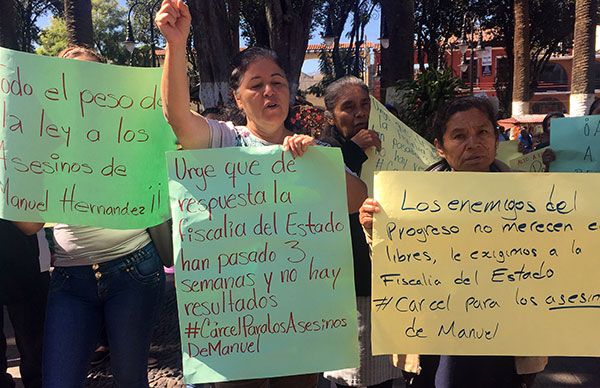 odo el peso de
la ley a los
Asesinos de
Manuel Hernandez ¡¡
Urge que de
respuesta la
fiscalia del Estado
han pasado 3
semanas y no hay
resultados
#CárcelParalosAsesinos
DeManuel
Los enemigos del
Progreso no merecen e
libres, le exigimos a la
Fiscalia del Estado
#Cárcel para los asesin
de Manuel